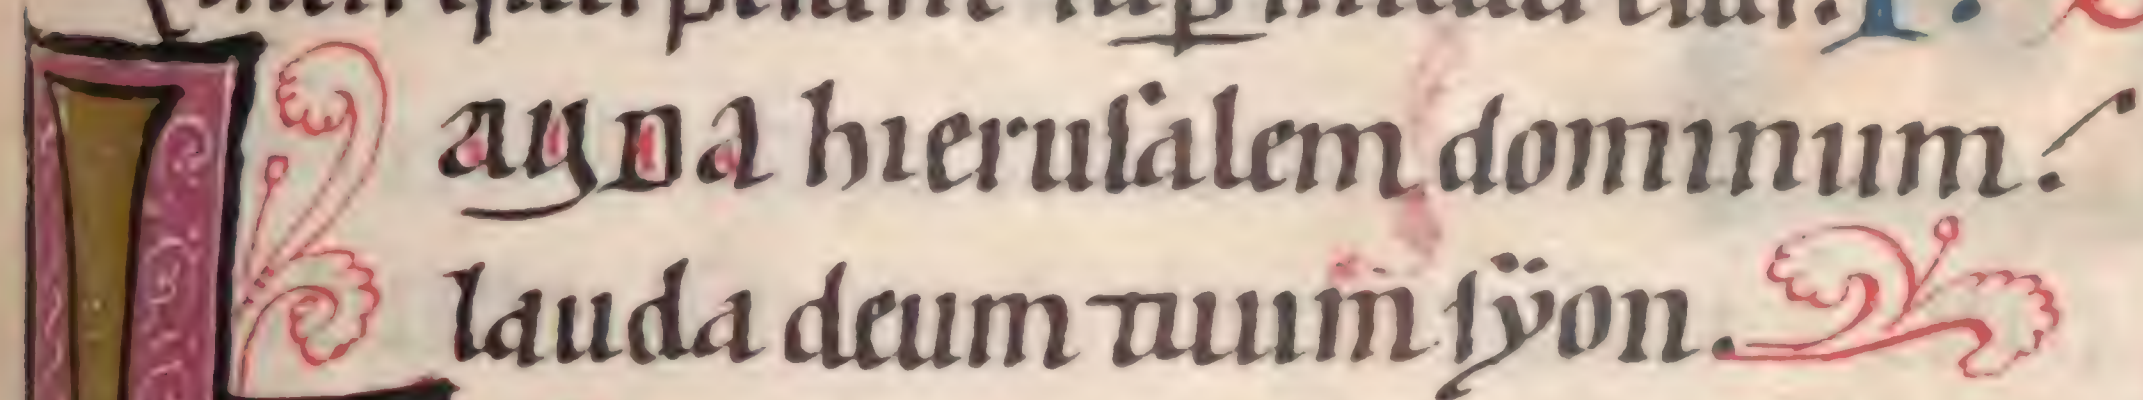 LAUDA hierusalem dominum:
lauda deum tuum syon.